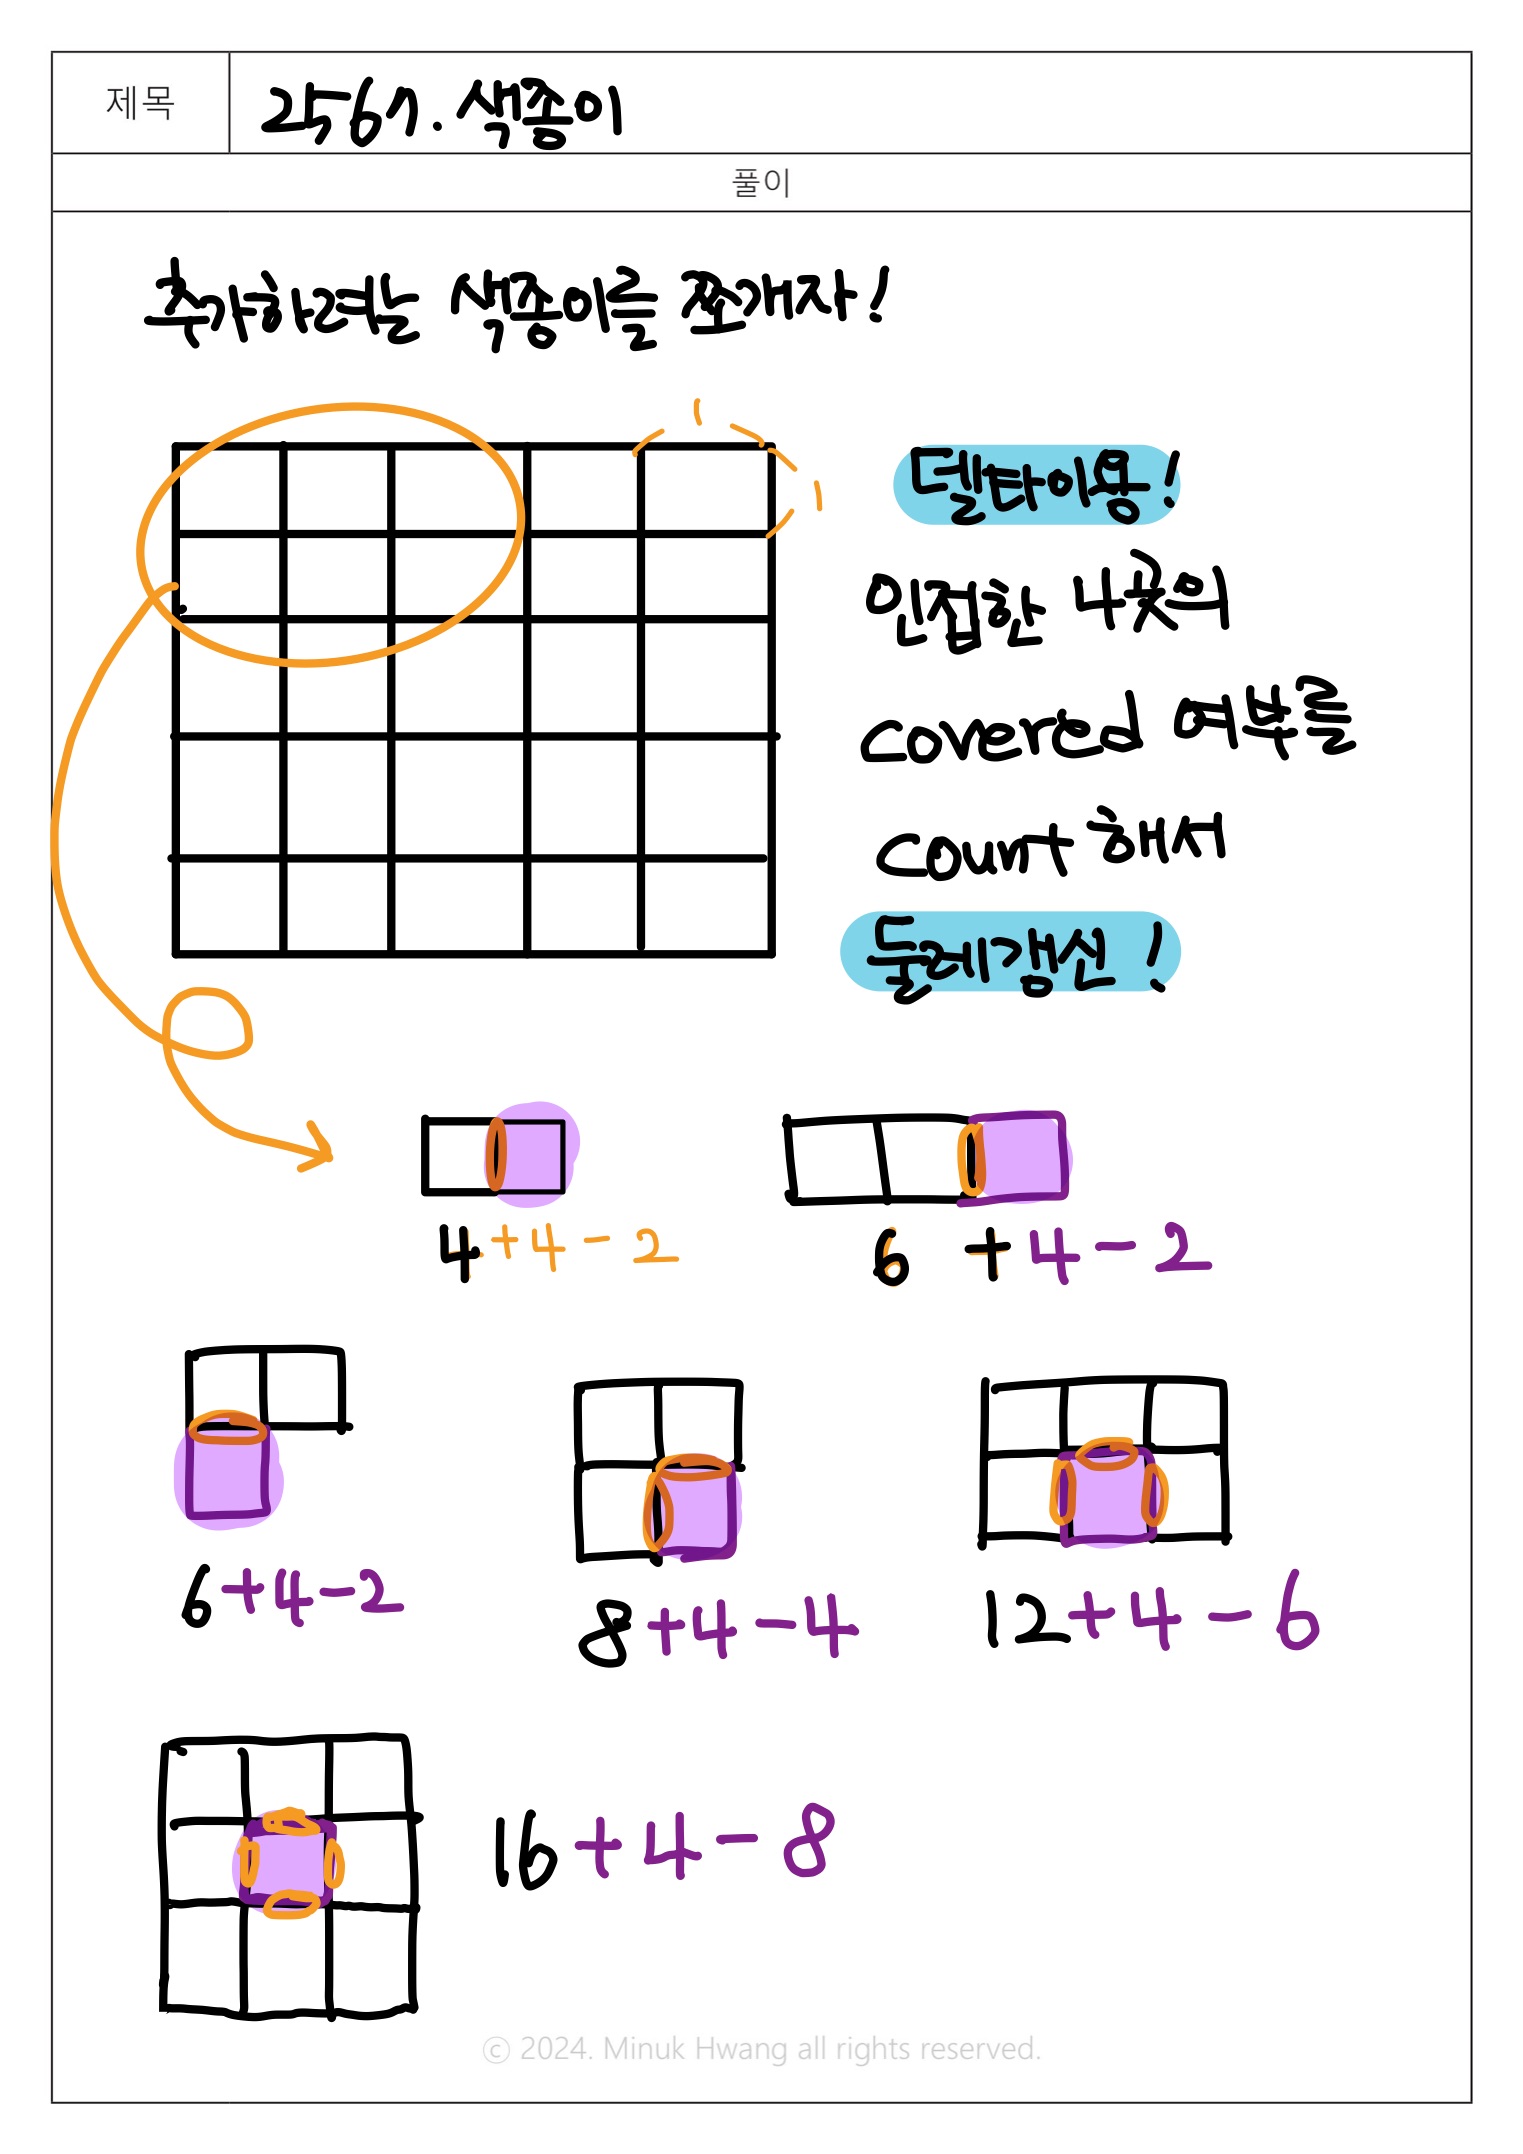 제목
2567. 색종이
풀이
추가하려는 색종이를 쪼개자!
델타이용!
인접한 4곳의
covered 여부를
count 해서
둘레갱신!
4+4-2
6 +4-2
6+4-2
8+4-4
12+4-6
16+4-8
ⓒ 2024. Minuk Hwang all rights reserved.